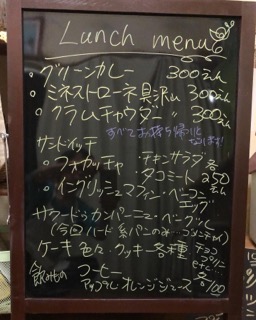 Lunch menu
・グリーンカレー 300えん
・ミネストローネ具沢山 300
・クラムチャウダー 〃 300えん
すべてお持ち帰りに
なれます!
サンドイッチ
・フォカッチャ・チキンサラダ 各
・タコミート 250
・イングリッシュマフィン・ベーコン えん
エッグ
サワードゥカンパーニュ・ベーグル
(今回ハード系パンのみ
ケーキ色々・クッキー各種
飲みもの コーヒー
アップル オレンジジュース 各100